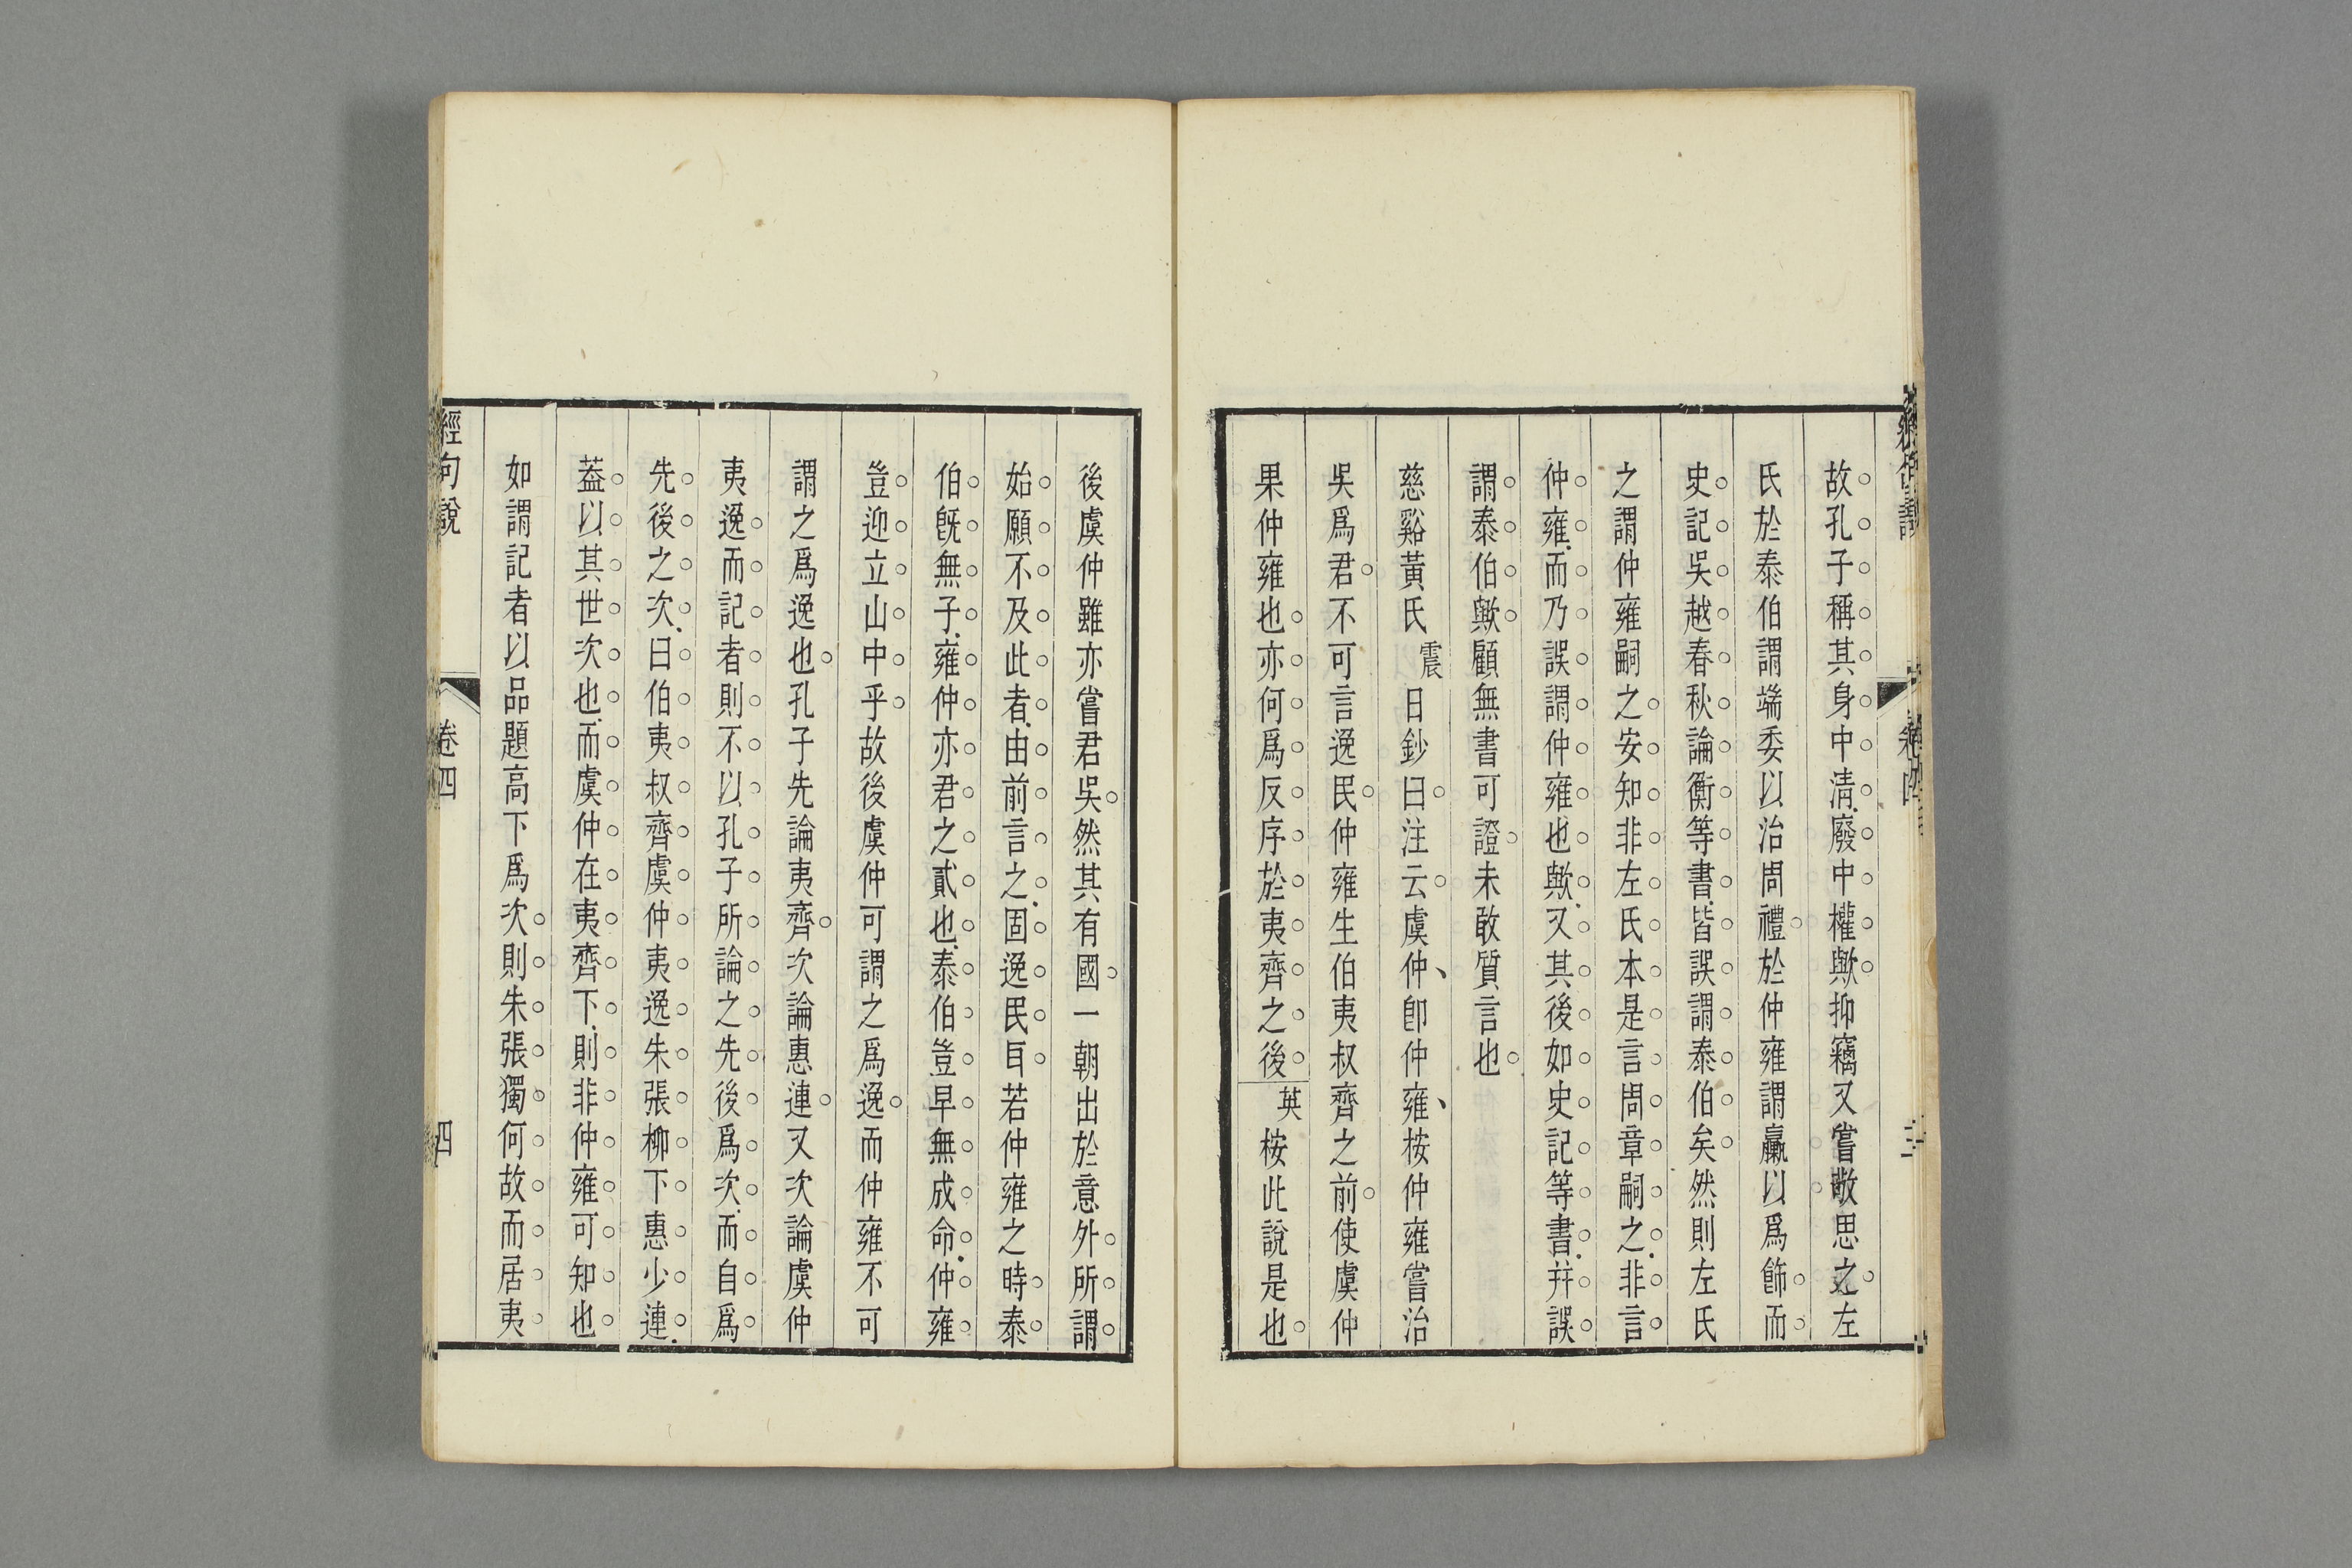 故孔子稱其身中清廢中權歟抑竊又嘗敬思之左
氏於泰伯謂端委以治周禮於仲雍謂臝以爲飾而
史記吳越春秋論衡等書皆誤謂泰伯矣然則左氏
之謂仲雍嗣之安知非左氏本是言周章嗣之非言
仲雍而乃誤謂仲雍也歟又其後如史記等書幷誤
謂泰伯歟顧無書可證未敢質言也
慈谿黃氏震日鈔曰注云虞仲卽仲雍桉仲雍嘗治
吳爲君不可言逸民仲雍生伯夷叔齊之前使虞仲
果仲雍也亦何爲反序於夷齊之後英桉此說是也
後虞仲雖亦嘗君吳然其有國一朝出於意外所謂
始願不及此者由前言之固逸民耳若仲雍之時泰
伯旣無子雍仲亦君之貳也泰伯豈早無成命仲雍
豈迎立山中乎故後虞仲可謂之爲逸而仲雍不可
謂之爲逸也孔子先論夷齊次論惠連又次論虞仲
夷逸而記者則不以孔子所論之先後爲次而自爲
先後之次曰伯夷叔齊虞仲夷逸朱張柳下惠少連
葢以其世次也而虞仲在夷齊下則非仲雍可知也
如謂記者以品題高下爲次則朱張獨何故而居夷
經句說
卷四
四